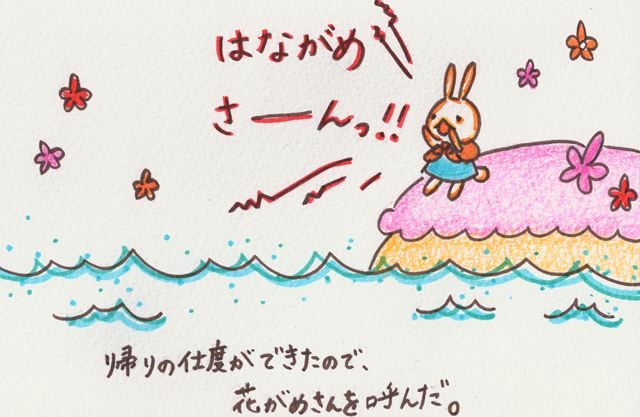 はながめ
さーんっ!!
帰りの仕度ができたので、
花がめさんを呼んだ。